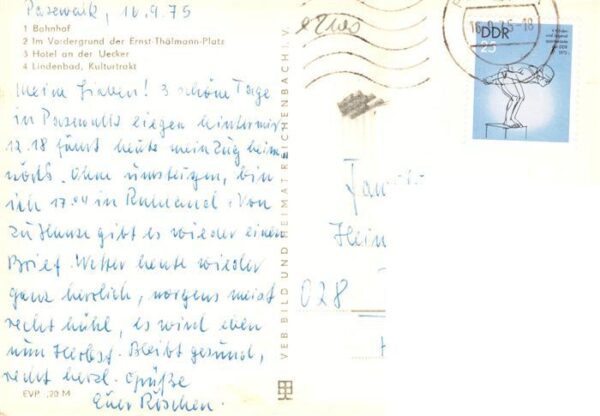 Pasewalk, 16.9.75
1 Bahnhof
2 Im Vordergrund der Ernst-Thälmann-Platz
3 Hotel an der Uecker
4 Lindenbad, Kulturtrakt
Meine Lieben! 3 schöne Tage
in Pasewalk liegen hinter mir
12.18 fährt heute mein Zug heim-
wärts. Ohne umsteigen, bin
ich 17.04 in Ruhland. Von
zu Hause gibt es wieder einen
Brief. Wetter heute wieder
ganz herrlich, morgens meist
recht kühl, es wird eben
nun Herbst. Bleibt gesund,
recht herzl. Grüße
Euer Röschen.
EVP ,20 M
VEB BILD UND HEIMAT REICHENBACH I. V.
DDR
25
Fam
Hein
028